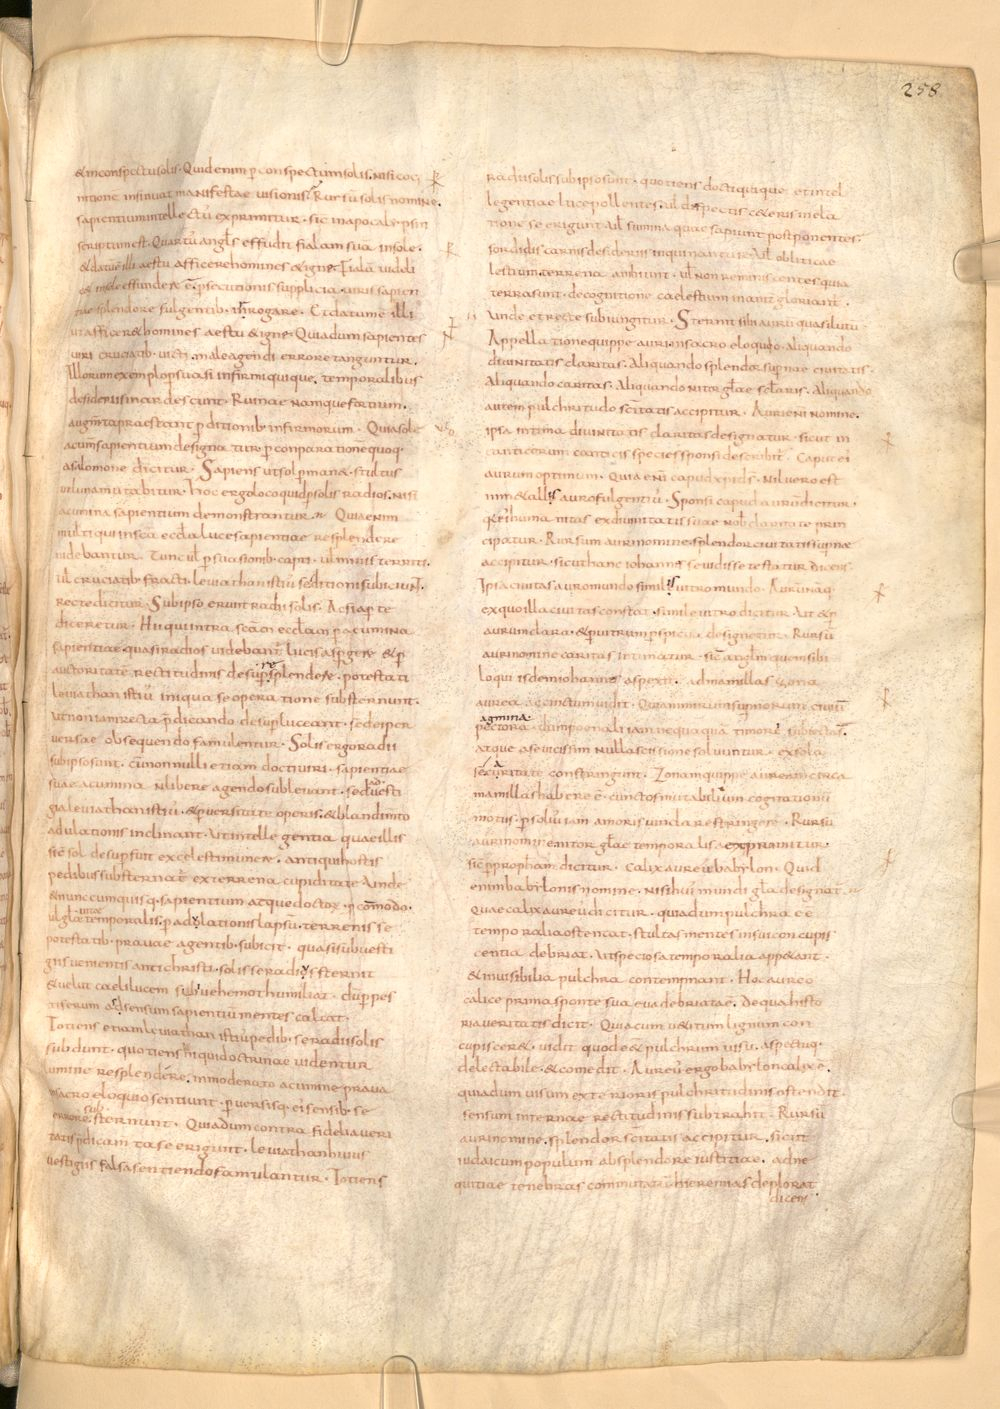 258
& in conspectu solis. Quid enim p conspectum solis. nisi cog
nitionē insinuat manifestae visionis; Rursū solis nomine.
sapientium intellectū exprimitur. sic in apocalẏpsin
scriptum est. Quartus angłs effudit fialam suā insole.
& datū ē illi aestu afficere homines & igne. Fialā uidelic
& insole effundere ē. psecutionis supplicia uiris sapien
tiae splendore fulgentib; inrogare. Et datum ē illi
ut afficer& homines aestu & igne. Quia dum sapientes
uiri cruciatib; uicti male agendi errore tanguntur.
Illorum exemplo psuasi infirmi quique. temporalibus
desideriis inardescunt. Ruinae namque fortium.
augmta praestant pditionib; infirmorum. Quia sole
acum sapientium designatur p conparationē quoq;
a salomone dicitur. Sapiens ut sol pman&. stultus
ut luna mutabitur. Hoc ergo loco quid p solis radios. nisi
acumina sapientium demonstrantur. Quia enim
multi qui in scā ecclā luce sapientiae resplendere
uidebantur. Tunc uł psuasionib; capti. uł minis territi.
uł cruciatib; fracti. leuiathan istiū se ditioni subiciunt.
Recte dicitur. Sub ipso erunt radii solis. Ac si apte
diceretur. Hii qui intra scām ecclam p acumina
sapientiae quasi radios uidebant lucis aspgere & p
auctoritatē rectitudinis desup resplendere. potestati
leuiathan istiū iniqua se operatione substernunt.
Ut non iam recta pdicando desup luceant. sed ei per
uersae obsequendo famulentur. Solis ergo radii
sub ipso sunt. cū nonnulli etiam docti uiri. sapientiae
suae acumina n libere agendo subleuant. sed ad uesti
gia leuiathan istiū. & puersitate operis. & blandimto
adulationis inclinant. Ut intellegentia quae illis
sic sol desup fuit ex celesti munere. antiqui hostis
pedibus substernat ex terrena cupiditate. Unde
& nunc cum quisq; sapientium atque doctor. p cōmodo.
uł głae uitae temporalis. p adulationis lapsū. terrenis se
potestatib; praue agentib; subicit. quasi sub uesti
giis uenientis antichristi. solis se radius sternit
& uelut caeli lucem sub uehemoth humiliat. dū ppes
tiferum adsensum sapientiū mentes calcat.
Totiens enim leuiathan istiū pedib; se radii solis
subdunt. quotiens hi qui doctrinae uidentur
lumine resplendēre. inmoderato acumine praua
in sacro eloquio sentiunt. puersisq; eī sensib; se
errore substernunt. Quia dum contra fidelia ueri
tatis pdicamta se erigunt. leuiathan huius
uestigiis falsa sentiendo famulantur. Totiens
radii solis sub ipso sunt. quotiens docti quique et intel
legentiae luce pollentes. uł dispectis ceteris in ela
tione se erigunt. Uł summa quae sapiunt postponentes.
sordidis carnis desideriis inquinantur. Uł oblitae
lestium. terrena ambiunt. uł non reminiscentes quia
terra sunt. de cognitione caelestium inanit gloriant.
Unde et recte subiungitur. Sternit sibi aurū quasi lutū.
Appellatione quippe auri in sacro eloquio. aliquando
diuinitatis claritas. Aliquando splendor supnae ciuitatis.
Aliquando caritas. Aliquando nitor głae sclaris. Aliquando
autem pulchritudo scītatis accipitur. Auri enī nomine.
ipsa intima diuinitatis claritas designatur. sicut in
canticorum canticis species sponsi describit. Caput eī
aurum optimum. Quia enī capud xpi ds. Nil uero est
in metallis auro fulgentiū. Sponsi capud aurū dicitur.
qa eī humanitas ex diuinitatis suae nob claritate prin
cipatur. Rursum auri nomine splendor ciuitatis supnae
accipitur. sicut hanc iohannes se uidisse testatur dicens.
Ipsa ciuitas auro mundo similis uitro mundo. Aurū naq;
ex quo illa ciuitas constat simile uitro dicitur. Ut & p
aurum clara. & p uitrum pspicua designetur. Rursū
auri nomine caritas intimatur. sic angłm quem sibi
loqui isdem iohannes aspexit. ad mamillas zona
aurea accinctum uidit. Quia nimirum supnorum ciuiū
pectora agmina. dum poenali iam nequaqua timore subiectas.
atque a se uicissim nulla scissione soluuntur. ex sola
se cāritate constringunt. Zonam quippe auream circa
mamillas habere ē. cunctos mutabilium cogitationū
motus. p solius iam amoris uincla restringere. Rursū
auri nomine nitor głae temporalis aexprimitur.
sic p proph&am dicitur. Calix aureus babylon. Quid
enim babylonis nomine. nisi huius mundi gła designat
Quae calix aureus dicitur. quia dum pulchra eē
temporalia ostentat. stultas mentes in sui concupis
centia debriat. Ut speciosa temporalia app&ant.
& inuisibilia pulchra contemnant. Hoc aureo
calice prima sponte sua eua debriata ē. De qua histo
ria ueritatis dicit. Quia cum u&itum lignum con
cupiscer&. uidit quod e& pulchrum uisu. aspectuq;
delectabile. & comedit. Aureus ergo babylon calix ē.
quia dum uisum exterioris pulchritudinis ostendit.
sensum internae rectitudinis subtrahit. Rursū
auri nomine. splendor scītatis accipitur. sicut
iudaicum populum ab splendore iustitiae. ad ne
quitiae tenebras commutatū. hieremias deplorat
dicens